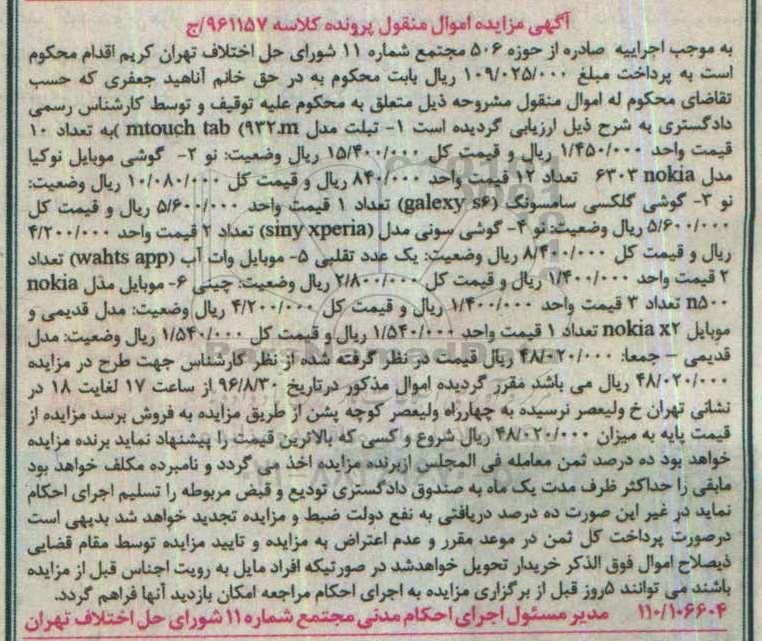 آگهی مزایده اموال منقول پرونده کلاسه ۹۶۱۱۵۷/ج
به موجب اجراییه صادره از حوزه ۵۰۶ مجتمع شماره ۱۱ شورای حل اختلاف تهران کریم اقدام محکوم
است به پرداخت مبلغ ۱۰۹/۰۲۵/۰۰۰ ریال بابت محکوم به در حق خانم آناهید جعفری که حسب
تقاضای محکوم له اموال منقول مشروحه ذیل متعلق به محکوم علیه توقیف و توسط کارشناس رسمی
دادگستری به شرح ذیل ارزیابی گردیده است ۱- تبلت مدل mtouch tab (۹۳۲.m )به تعداد ۱۰
قیمت واحد ۱/۴۵۰/۰۰۰ ریال و قیمت کل ۱۵/۴۰۰/۰۰۰ ریال وضعیت: نو ۲- گوشی موبایل نوکیا
مدل ۶۳۰۳ nokia تعداد ۱۲ قیمت واحد ۸۴۰/۰۰۰ ریال و قیمت کل ۱۰/۰۸۰/۰۰۰ ریال وضعیت:
نو ۳- گوشی گلکسی سامسونگ (galexy s۶) تعداد ۱ قیمت واحد ۵/۶۰۰/۰۰۰ ریال و قیمت کل
۵/۶۰۰/۰۰۰ ریال وضعیت: نو ۴- گوشی سونی مدل (siny xperia) تعداد ۲ قیمت واحد ۴/۲۰۰/۰۰۰
ریال و قیمت کل ۸/۴۰۰/۰۰۰ ریال وضعیت: یک عدد تقلبی ۵- موبایل وات آب (wahts app) تعداد
۲ قیمت واحد ۱/۴۰۰/۰۰۰ ریال و قیمت کل ۲/۸۰۰/۰۰۰ ریال وضعیت: چینی ۶- موبایل مدل nokia
n۵۰۰ تعداد ۳ قیمت واحد ۱/۴۰۰/۰۰۰ ریال و قیمت کل ۴/۲۰۰/۰۰۰ ریال وضعیت: مدل قدیمی و
موبایل nokia x۲ تعداد ۱ قیمت واحد ۱/۵۴۰/۰۰۰ ریال و قیمت کل ۱/۵۴۰/۰۰۰ ریال وضعیت: مدل
قدیمی – جمعا: ۴۸/۰۲۰/۰۰۰ ریال قیمت در نظر گرفته شده از نظر کارشناس جهت طرح در مزایده
۴۸/۰۲۰/۰۰۰ ریال می باشد مقرر گردیده اموال مذکور درتاریخ ۹۶/۸/۳۰ از ساعت ۱۷ لغایت ۱۸ در
نشانی تهران خ ولیعصر نرسیده به چهارراه ولیعصر کوچه پشن از طریق مزایده به فروش برسد مزایده از
قیمت پایه به میزان ۴۸/۰۲۰/۰۰۰ ریال شروع و کسی که بالاترین قیمت را پیشنهاد نماید برنده مزایده
خواهد بود ده درصد ثمن معامله فی المجلس ازبرنده مزایده اخذ می گردد و نامبرده مکلف خواهد بود
مابقی را حداکثر ظرف مدت یک ماه به صندوق دادگستری تودیع و قبض مربوطه را تسلیم اجرای احکام
نماید در غیر این صورت ده درصد دریافتی به نفع دولت ضبط و مزایده تجدید خواهد شد بدیهی است
درصورت پرداخت کل ثمن در موعد مقرر و عدم اعتراض به مزایده و تایید مزایده توسط مقام قضایی
ذیصلاح اموال فوق الذکر خریدار تحویل خواهدشد در صورتیکه افراد مایل به رویت اجناس قبل از مزایده
باشند می توانند ۵روز قبل از برگزاری مزایده به اجرای احکام مراجعه امکان بازدید آنها فراهم گردد.
۱۱۰/۱۰۶۶۰۴ مدیر مسئول اجرای احکام مدنی مجتمع شماره ۱۱ شورای حل اختلاف تهران